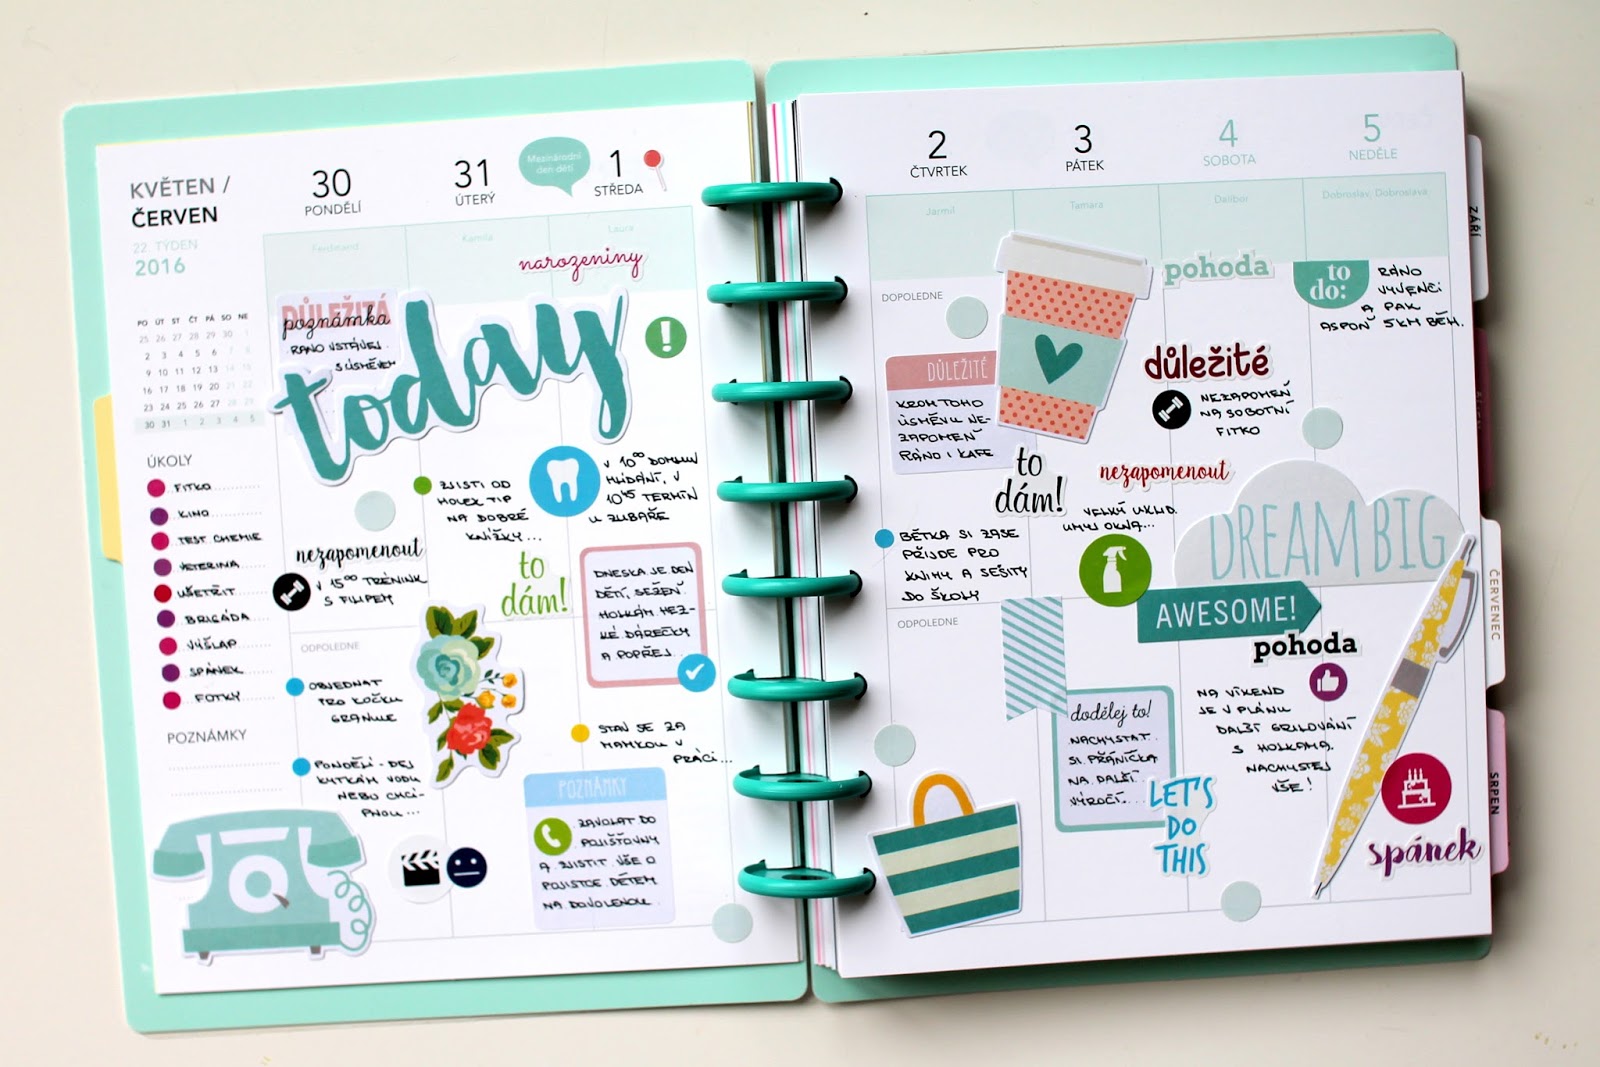 KVĚTEN /
ČERVEN
22. TÝDEN
2016
PO ÚT ST ČT PÁ SO NE
25 26 27 28 29 30 1
2 3 4 5 6 7 8
9 10 11 12 13 14 15
16 17 18 19 20 21 22
23 24 25 26 27 28 29
30 31 1 2 3 4 5
ÚKOLY
FITKO
KINO
TEST CHEMIE
VETERINA
UŠETŘIT
BRIGÁDA
VÝŠLAP
SPÁNEK
FOTKY
POZNÁMKY
30
PONDĚLÍ
Ferdinand
DŮLEŽITÁ
poznámka
RÁNO VSTÁVEJ
S ÚSMĚVEM
today
nezapomenout
V 15⁰⁰ TRÉNINK
S FILIPEM
ODPOLEDNE
OBJEDNAT
PRO KOČKU
GRANULE
PONDĚLÍ - DEJ
KYTKÁM VODU
NEBO CHCÍ-
PNOU...
31
ÚTERÝ
Kamila
ZJISTI OD
HOLEK TIP
NA DOBRÉ
KNÍŽKY...
to
dám!
Mezinárodní
den dětí
1
STŘEDA
Laura
narozeniny
V 10⁰⁰ DOMLUV
HLÍDÁNÍ, V
10⁴⁵ TERMÍN
U ZUBAŘE
DNESKA JE DEN
DĚTÍ, SEŽEŇ
HOLKÁM HEZ-
KÉ DÁREČKY
A POPŘEJ...
STAV SE ZA
MAMKOU V
PRÁCI...
POZNÁMKY
ZAVOLAT DO
POJIŠŤOVNY
A ZJISTIT VŠE O
POJISTCE DĚTEM
NA DOVOLENOU.
2
ČTVRTEK
Jarmil
DOPOLEDNE
DŮLEŽITÉ
KROM TOHO
ÚSMĚVU NE-
ZAPOMEŇ
RÁNO I KAFE
BĚTKA SI ZASE
PŘIJDE PRO
KNIHY A SEŠITY
DO ŠKOLY
ODPOLEDNE
3
PÁTEK
Tamara
to
dám!
nezapomenout
VELKÝ ÚKLID.
UMYJ OKNA...
dodělej to!
NACHYSTAT
SI PŘÁNÍČKA
NA DALŠÍ
VÝROČÍ...
LET'S
DO
THIS
4
SOBOTA
Dalibor
pohoda
důležité
NEZAPOMEŇ
NA SOBOTNÍ
FITKO
DREAM BIG
AWESOME!
pohoda
NA VÍKEND
JE V PLÁNU
DALŠÍ GRILOVÁNÍ
S HOLKAMA.
NACHYSTEJ
VŠE!
5
NEDĚLE
Dobroslav, Dobroslava
to
do:
RÁNO
VYVENČI
A PAK
ASPOŇ 5KM BĚH.
spánek
ZÁŘÍ
ČERVENEC
SRPEN